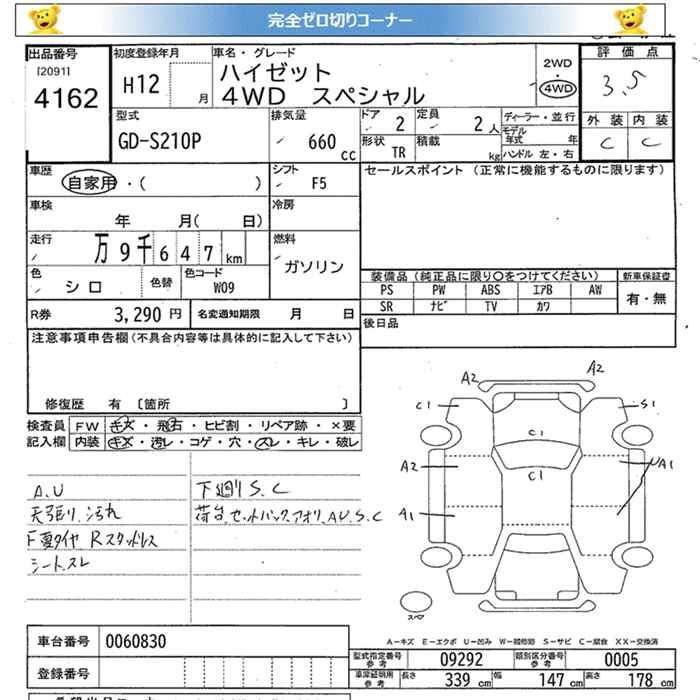 完全ゼロ切りコーナー
出品番号
[2091]
4162
初度登録年月
H12
月
車名・グレード
ハイゼット
4WD スペシャル
2WD
4WD
評価点
3.5
外装 内装
C C
型式
GD-S210P
排気量
660
cc
ドア
2
定員
2人
形状
TR
積載
kg
ディーラー・並行
モデル年式 年
ハンドル 左・右
車歴
自家用・( )
シフト
F5
セールスポイント (正常に機能するものに限ります)
車検
年 月( 日)
冷房
走行
万9千647km
燃料
ガソリン
色
シロ
色替
色コード
W09
装備品(純正品に限り○をつけてください)
PS PW ABS エアB AW
SR ナビ TV カワ
新車保証書
有・無
R券 3,290円
名変通知期限 月 日
後日品
注意事項申告欄(不具合内容等は具体的に記入して下さい)
修復歴 有 〔箇所 〕
検査員記入欄
FW キズ・飛石・ヒビ割・リペア跡・×要
内装 キズ・汚レ・コゲ・穴・スレ・キレ・破レ
A.U
天張り汚れ
F夏タイヤ Rスタッドレス
シートスレ
下廻りS.C
荷台、セットバック、アオリ、A.U.S.C
A2
A2
C1
S1
C1
C1
A2
A1
A1
スペア
A-キズ E-エクボ U-凹み W-補修跡 S-サビ C-腐食 XX-交換済
車台番号 0060830
登録番号
型式指定番号 参考 09292
類別区分番号 参考 0005
車庫証明用 参考 長さ 339 cm 幅 147 cm 高さ 178 cm